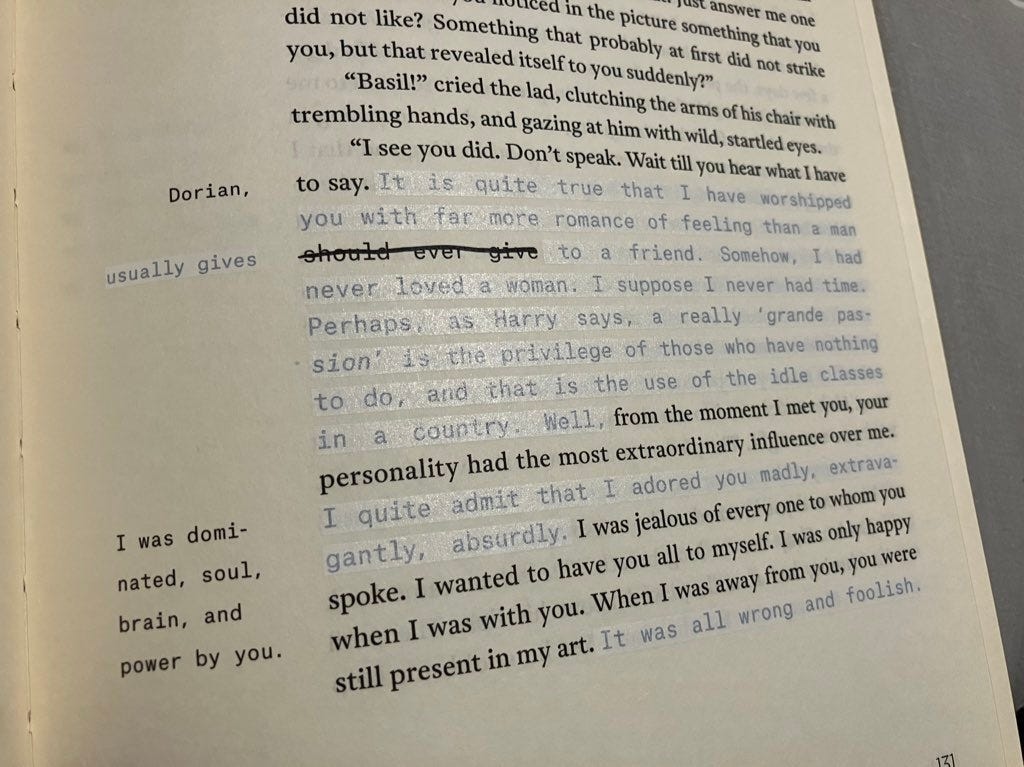 noticed in the picture something that you
just answer me one
did not like? Something that probably at first did not strike
you, but that revealed itself to you suddenly?”
“Basil!” cried the lad, clutching the arms of his chair with
trembling hands, and gazing at him with wild, startled eyes.
“I see you did. Don’t speak. Wait till you hear what I have
Dorian,
to say. It is quite true that I have worshipped
you with far more romance of feeling than a man
usually gives
should ever give to a friend. Somehow, I had
never loved a woman. I suppose I never had time.
Perhaps, as Harry says, a really ‘grande pas-
sion’ is the privilege of those who have nothing
to do, and that is the use of the idle classes
in a country. Well, from the moment I met you, your
personality had the most extraordinary influence over me.
I quite admit that I adored you madly, extrava-
gantly, absurdly. I was jealous of every one to whom you
spoke. I wanted to have you all to myself. I was only happy
when I was with you. When I was away from you, you were
still present in my art. It was all wrong and foolish.
I was domi-
nated, soul,
brain, and
power by you.
131